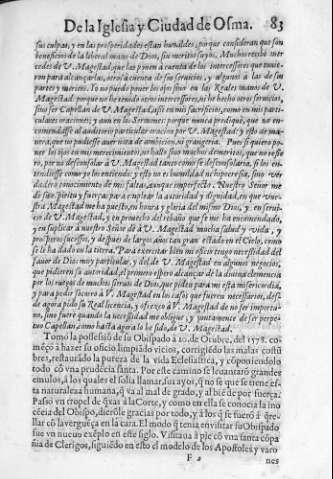 De la Iglesia y Ciudad de Osma. 83
sus culpas, y en las prosperidades estan humildes, porque consideran que son
beneficios de la liberal mano de Dios, sin meritos suyos. Muchos recebi mer-
cedes de V. Magestad, que las ponen à cuenta de los intercessores que tuvie-
ron para alcançarlas, otros à cuenta de sus servicios, y algunos à las de sus
partes y meritos. Yo no puedo poner los ojos sino en las Reales manos de V.
Magestad: porque no he tenido otros intercessores, ni he hecho otros servicios,
sino ser Capellan de V. Magestad, assi en mis sacrificios, como en mis parti-
culares oraciones, y aun en los Sermones: porque nunca prediquè, que no en-
comendasse al auditorio particular oracion por V. Magestad: y esto de ma-
nera, que no pudiesse aver nota de ambicion, ni grangeria. Pues si quiero po-
ner los ojos en mi merecimiento, no hallo sino muchos demeritos, que no refie-
ro, por no desconsolar à V. Magestad tanto como se desconsolaria, si los en-
tendiesse como yo los entiendo; y esto no es humildad ni hipocresia, sino ver-
dadero conocimiento de mis faltas, aunque imperfecto. Nuestro Señor me
dè su espiritu y fuerças para cumplir la autoridad y dignidad, en que vues-
tra Magestad me ha puesto, en honra y gloria del mismo Dios, y en servi-
cio de V. Magestad, y en provecho del rebaño que se me ha encomendado,
y en suplicar à nuestro Señor dè à V. Magestad mucha salud y vida, y
prosperos sucessos, y despues de largos años tan gran estado en el Cielo, como
se le ha dado en la tierra. Para exercitar bien mi oficio tengo necessidad del
favor de Dios muy particular, y del de V. Magestad en algunos negocios,
que pidieren su autoridad, el primero espero alcançar de la divina clemencia
por los ruegos de muchos siervos de Dios, que piden para mi esta misericordia,
y para pedir socorro à V. Magestad en los casos que fueren necessarios, des-
de agora pido su Real licencia, y ofrezco à V. Magestad de no ser importu-
no, sino fuere quando la necessidad me obligue, y juntamente de ser perpe-
tuo Capellan, como hasta agora lo he sido, de V. Magestad.
Tomò la possession de su Obispado à 20. de Octubre, del 1578. co-
mẽçò à hazer su oficio limpiãdo vicios, corrigiẽdo las malas costũ
bres, restaurãdo la pureza de la vida Eclesiastica, y cõponiendolo
todo cõ vna prudẽcia santa. Por este camino se levantarõ grandes
emulos, à los quales el solia llamar, sus ayos, q̃ no sè que se tiene es-
ta naturaleza humana, q̃ va al mal de grado, y al biẽ de por fuerça.
Passò vn tropel de q̃xas à la Corte, y como en ella se conocia la ino
cẽcia del Obispo, dierõle gracias por todo, y à los q̃ se fuerõ à q̃re-
llar cõ la verguẽça en la cara. El modo q̃ tenia en visitar su Obispado
fue vn nuevo exẽplo en este siglo. Visitava à pie cõ vna santa cõpa
ñia de Clerigos, siguiẽdo en esto el modelo de los Apostoles y varo
F 2 nes